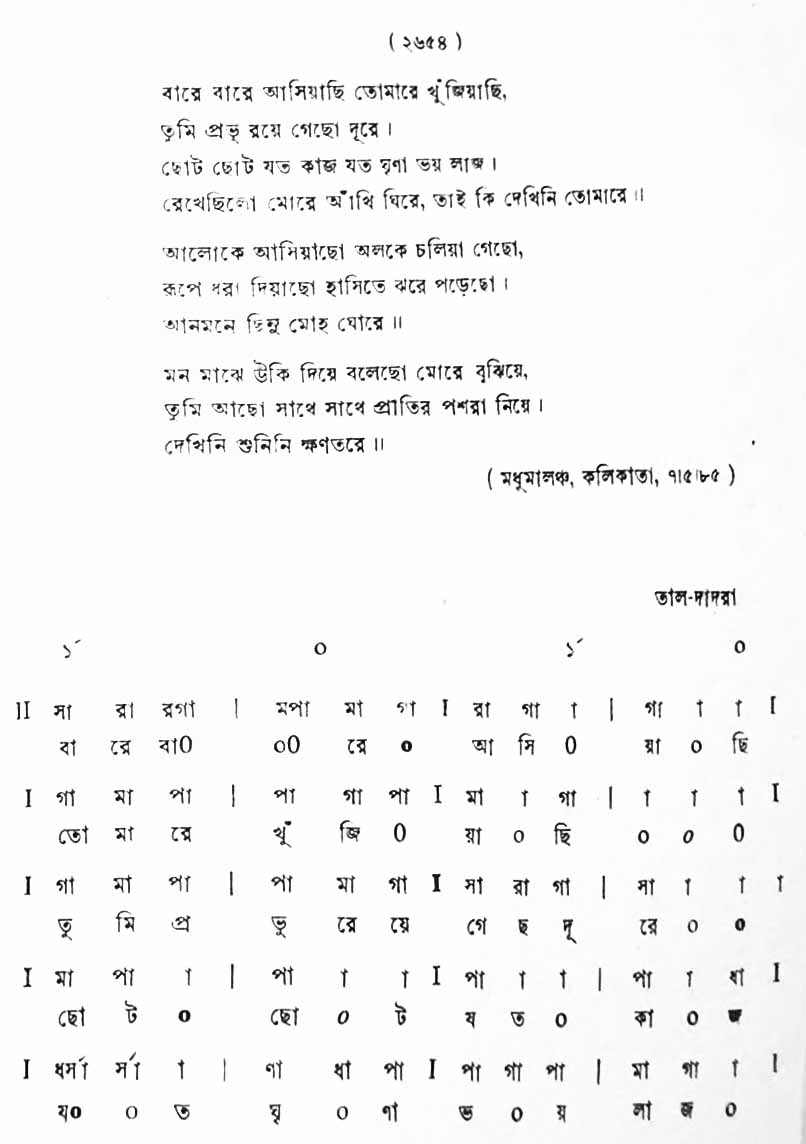 ( ২৬৫৪ )
বারে বারে আসিয়াছি তোমারে খুঁজিয়াছি,
তুমি প্রভু রয়ে গেছো দূরে ।
ছোট ছোট যত কাজ যত ঘৃণা ভয় লাজ ।
রেখেছিলো মোরে আঁখি ঘিরে, তাই কি দেখিনি তোমারে ॥
আলোকে আসিয়াছো অলকে চলিয়া গেছো,
রূপে ধরা দিয়াছো হাসিতে ঝরে পড়েছো ।
আনমনে ছিনু মোহ ঘোরে ॥
মন মাঝে উঁকি দিয়ে বলেছো মোরে বুঝিয়ে,
তুমি আছো সাথে সাথে প্রীতির পশরা নিয়ে ।
দেখিনি শুনিনি ক্ষণতরে ॥
( মধুমালঞ্চ, কলিকাতা, ৭।৫।৮৫ )
তাল-দাদরা
১´ ০ ১´ ০
II সা রা রগা | মপা মা গা I রা গা া | গা া া I
বা রে বা০ ০০ রে ০ আ সি ০ য়া ০ ছি
I গা মা পা | পা গা পা I মা া গা | া া া I
তো মা রে খুঁ জি ০ য়া ০ ছি ০ ০ ০
I গা মা পা | পা মা গা I সা রা গা | সা া া া
তু মি প্র ভু রে য়ে গে ছ দূ রে ০ ০
I মা পা া | পা া া I পা া া | পা া ধা I
ছো ট ০ ছো ০ ট য ত ০ কা ০ জ
I ধর্সা র্সা া | ণা ধা পা I পা গা পা | মা গা া I
য০ ০ ত ঘৃ ০ ণা ভ ০ য় লা জ ০